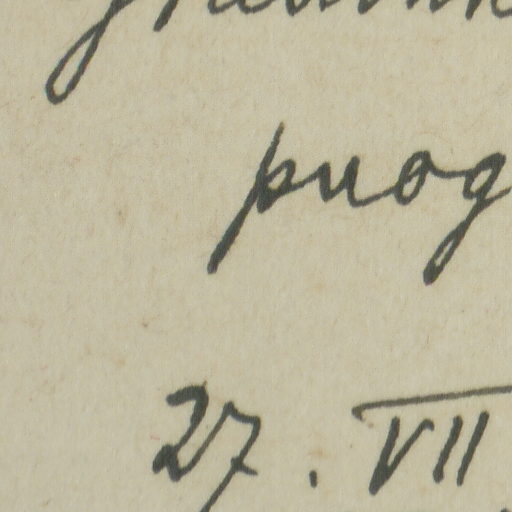 puog
27. VII